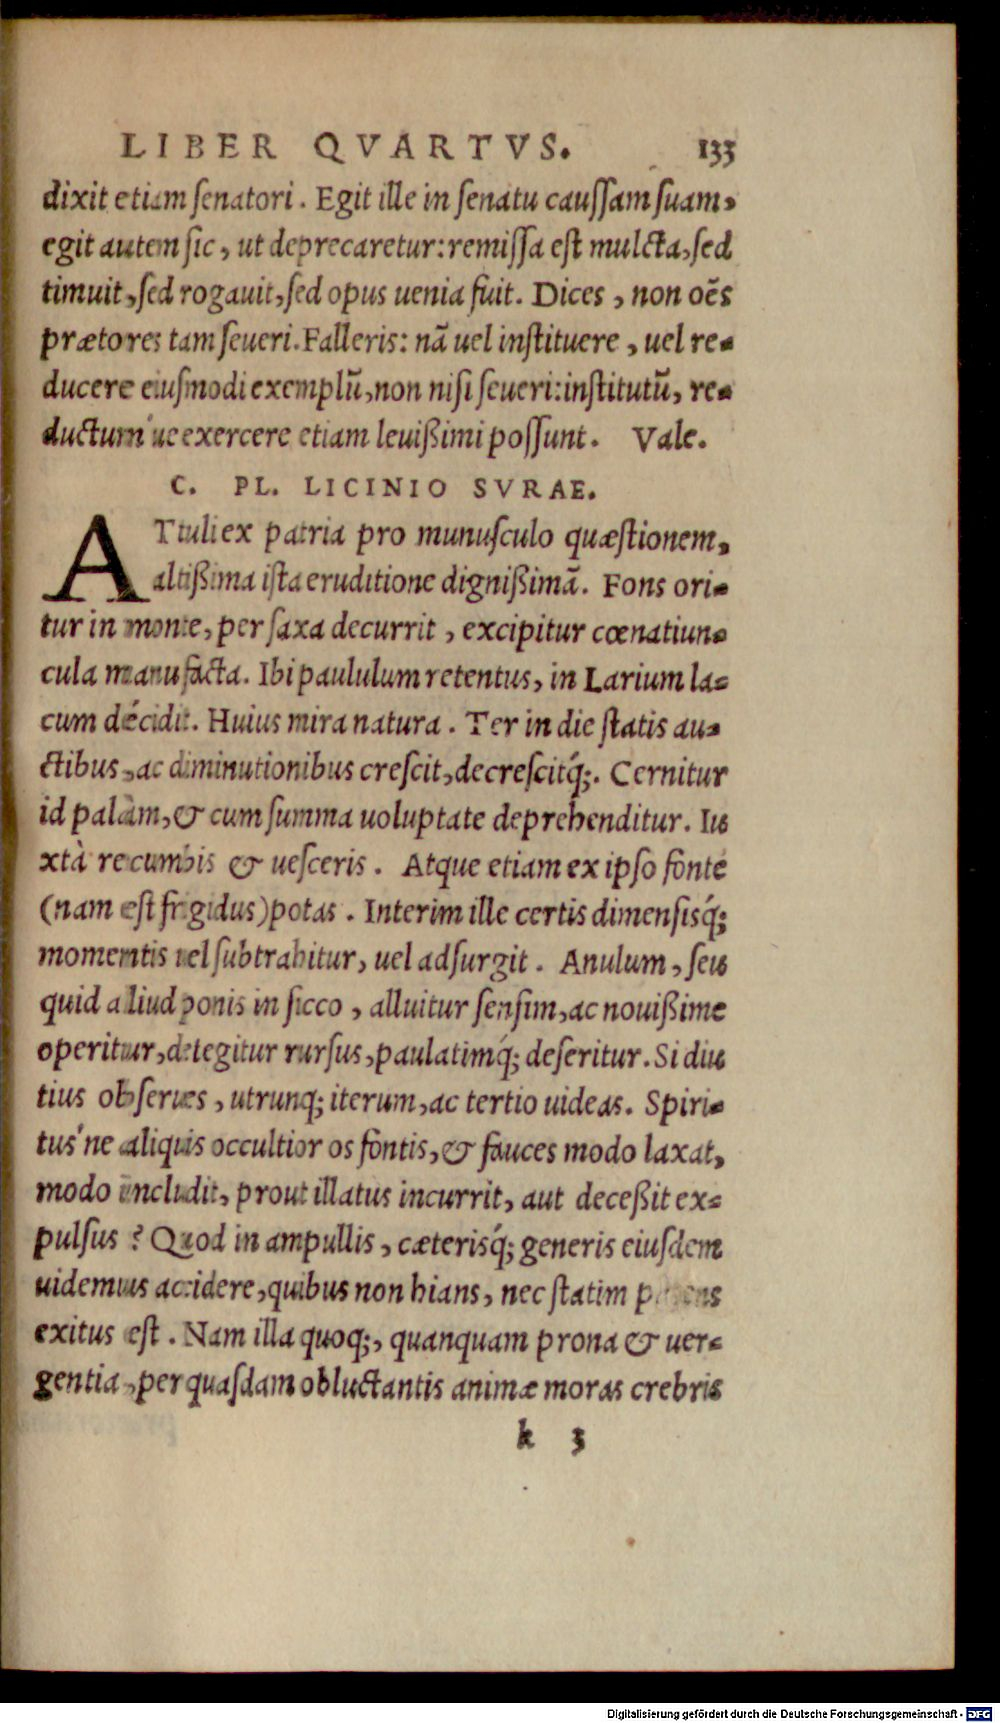 LIBER QVARTVS. 133
dixit etiam ſenatori. Egit ille in ſenatu cauſſam ſuam,
egit autem ſic, ut deprecaretur: remiſſa eſt mulcta, ſed
timuit, ſed rogauit, ſed opus uenia fuit. Dices, non oēs
prætores tam ſeueri. Falleris: nā uel inſtituere, uel re-
ducere eiuſmodi exemplū, non niſi ſeueri: inſtitutū, re-
ductum´ue exercere etiam leuißimi poſſunt. Vale.
C. PL. LICINIO SVRAE.
ATtuli ex patria pro munuſculo quæſtionem,
altißima iſta eruditione dignißimā. Fons ori-
tur in monte, per ſaxa decurrit, excipitur cœnatiun-
cula manu facta. Ibi paululum retentus, in Larium la-
cum décidit. Huius mira natura. Ter in die ſtatis au-
ctibus, ac diminutionibus creſcit, decreſcitq́;. Cernitur
id palàm, & cum ſumma uoluptate deprehenditur. Iu
xtà recumbis & ueſceris. Atque etiam ex ipſo fonte
(nam eſt frigidus) potas. Interim ille certis dimenſisq́;
momentis uel ſubtrahitur, uel adſurgit. Anulum, ſeu
quid aliud ponis in ſicco, alluitur ſenſim, ac nouißime
operitur, detegitur rurſus, paulatimq́; deſeritur. Si diu
tius obſerues, utrunq; iterum, ac tertio uideas. Spiri-
tus´ne aliquis occultior os fontis, & fauces modo laxat,
modo includit, prout illatus incurrit, aut deceßit ex-
pulſus? Quod in ampullis, cæterisq́; generis eiuſdem
uidemus accidere, quibus non hians, nec ſtatim patens
exitus eſt. Nam illa quoq;, quanquam prona & uer-
gentia, per quaſdam obluctantis animæ moras crebris
k 3
Digitalisierung gefördert durch die Deutsche Forschungsgemeinschaft - DFG